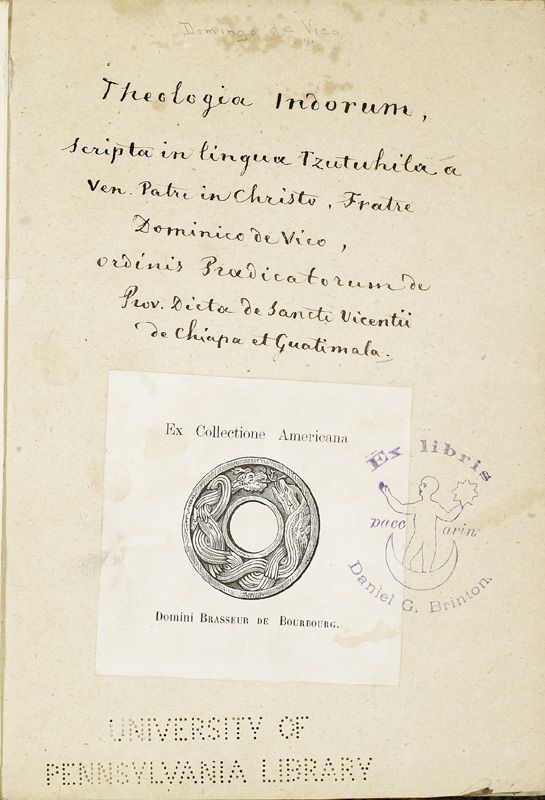 Domingo de Vico
Theologia Indorum,
scripta in lingua Tzutuhila a
Ven. Patre in Christo, Fratre
Dominico de Vico,
ordinis Prædicatorum de
Prov. Dicta de Sancti Vicentii
de Chiapa et Guatimala.
Ex Collectione Americana
Domini BRASSEUR DE BOURBOURG.
Ex libris
pacc arin
Daniel G. Brinton.
UNIVERSITY OF
PENNSYLVANIA LIBRARY